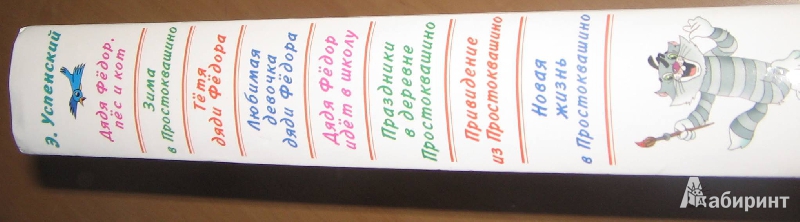 Э. Успенский
Дядя Фёдор,
пёс и кот
Зима
в Простоквашино
Тётя
дяди Фёдора
Любимая
девочка
дяди Фёдора
Дядя Фёдор
идёт в школу
Праздники
в деревне
Простоквашино
Привидение
из Простоквашино
Новая
жизнь
в Простоквашино
Лабиринт